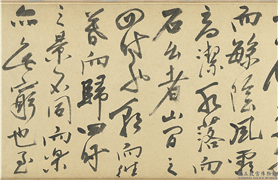 而繁陰風霜
高潔水落而
石出者山間之
四時也朝而往
暮而歸四時
之景不同而樂
亦無窮也至